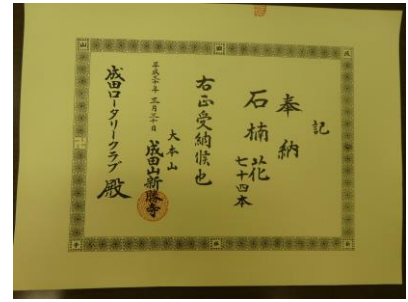 記
奉納
石楠花
七十四本
右正受納候也
平成二十年三月三十日
大本山
成田山新勝寺
成田ロータリークラブ殿